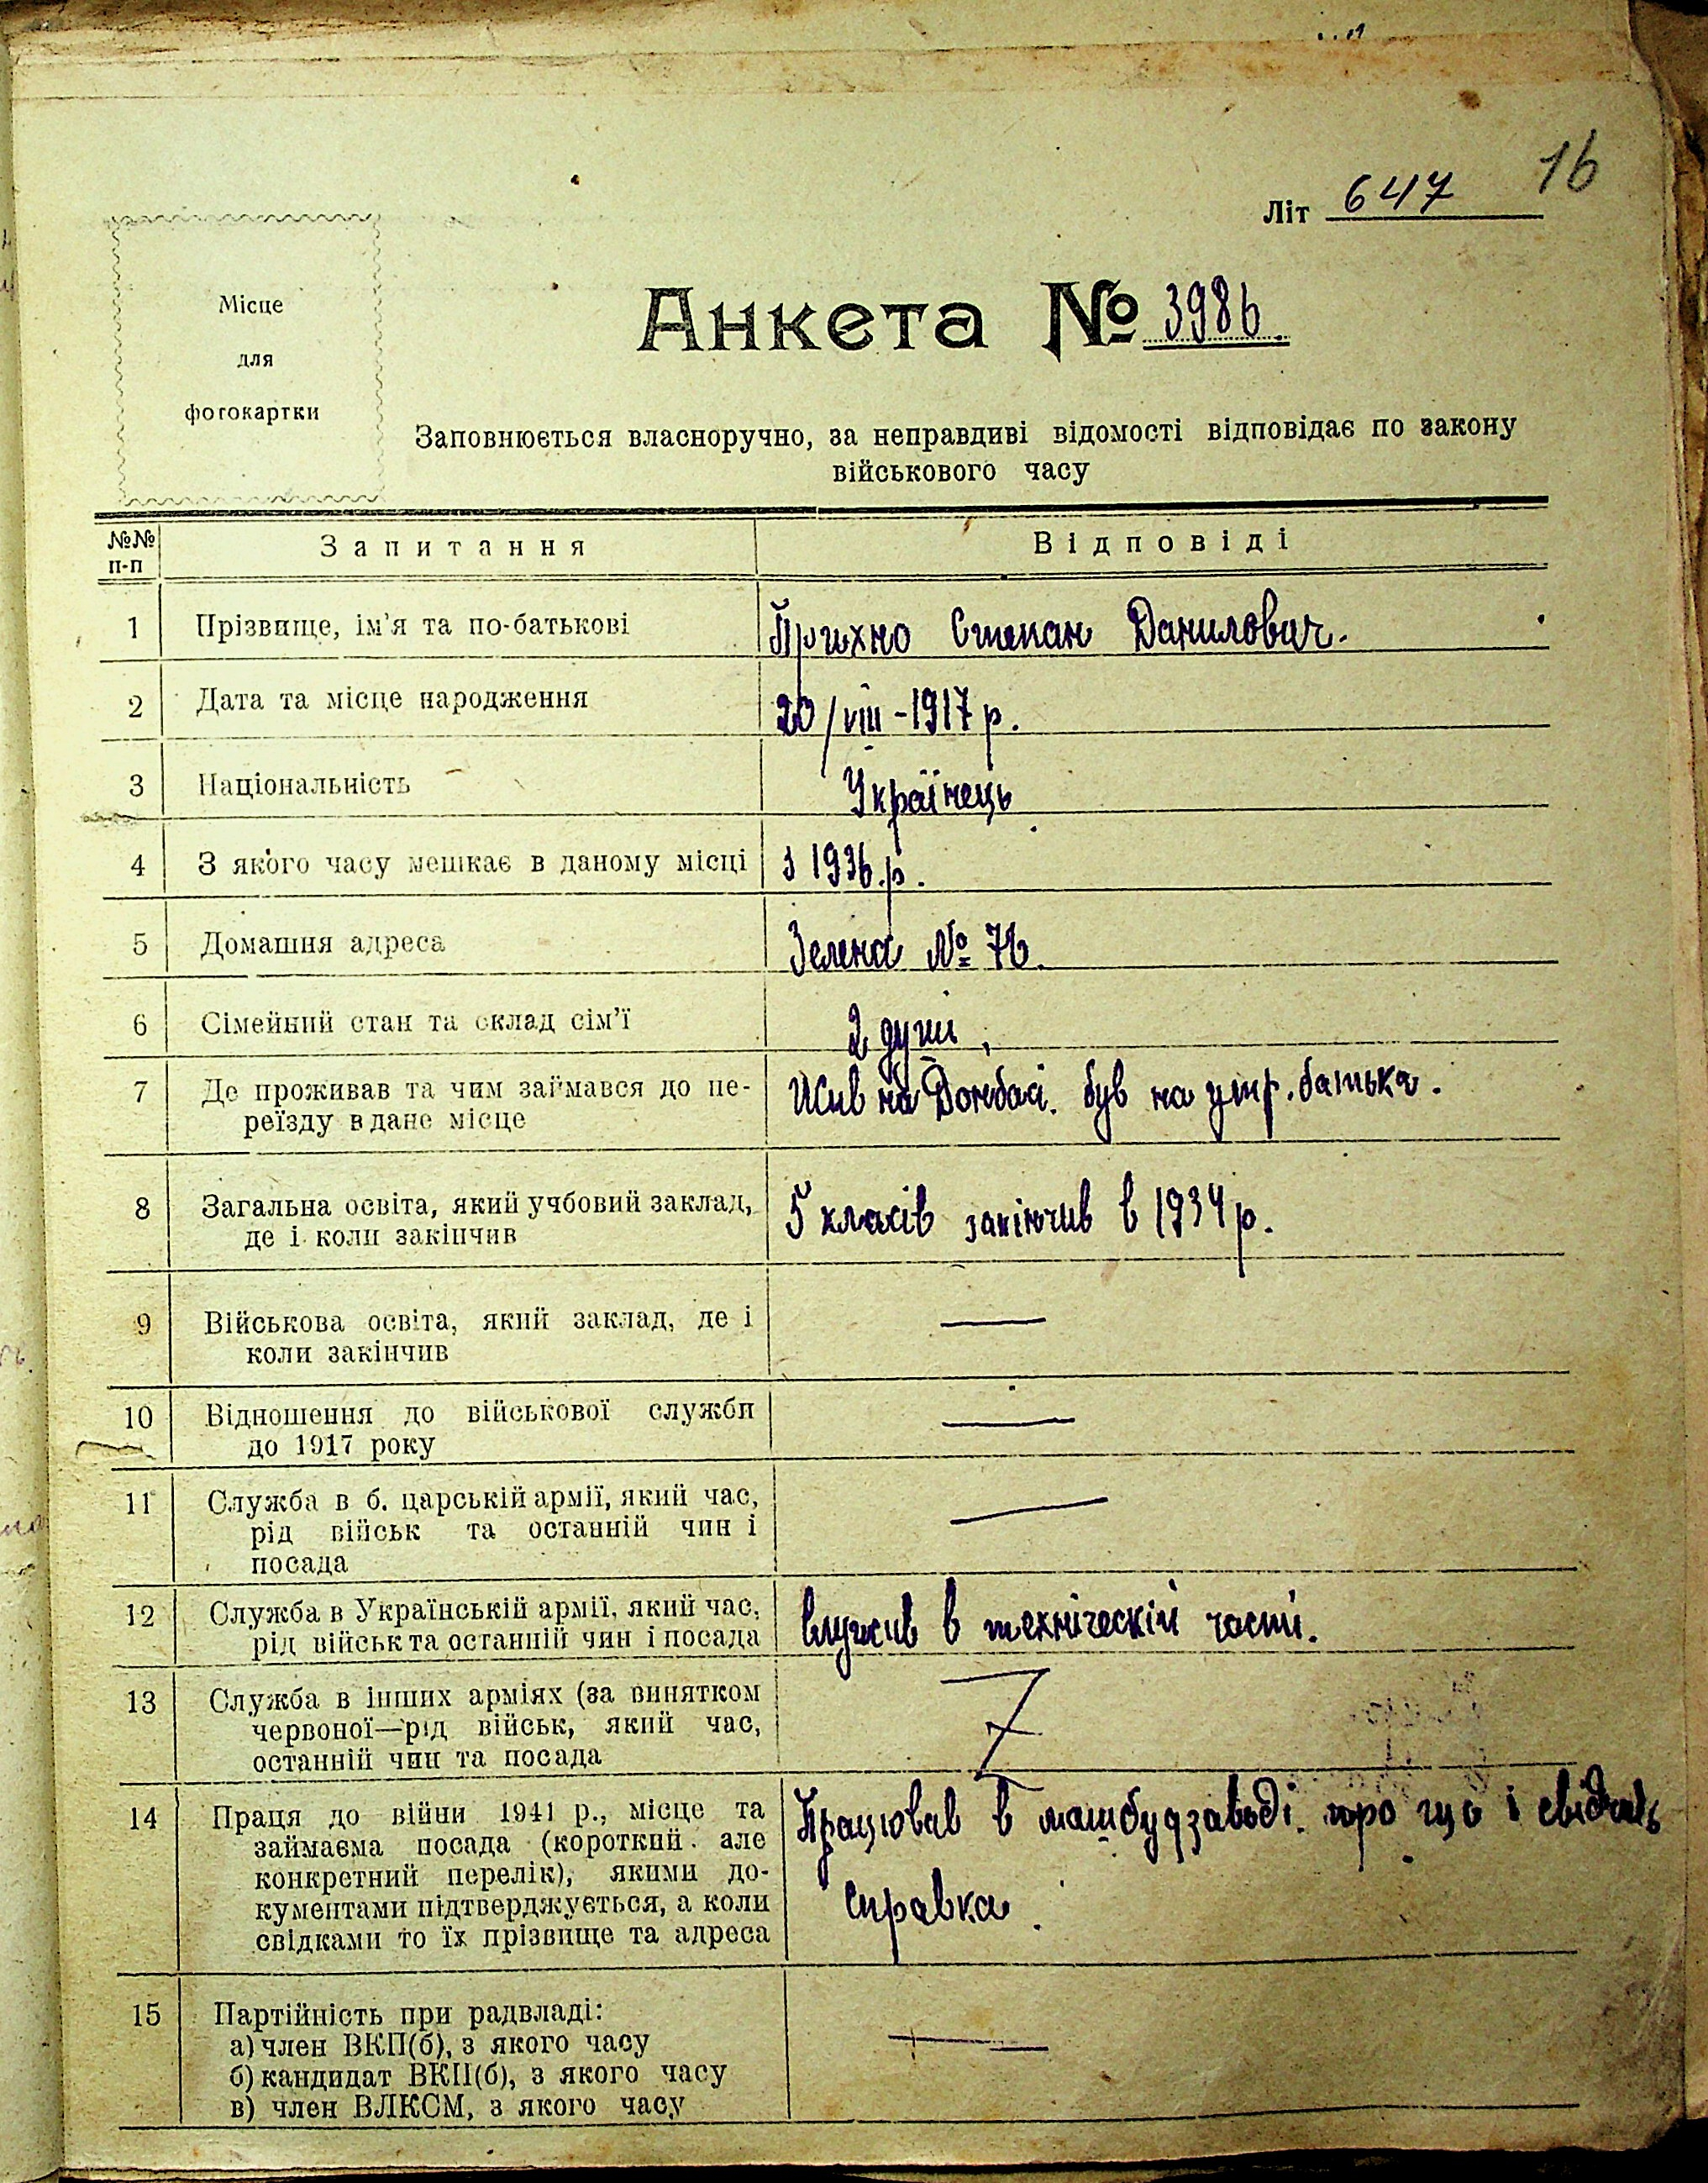 16
Літ 647
Місце
для
фотокартки
Анкета № 3986.
Заповнюється власноручно, за неправдиві відомості відповідає по закону
військового часу
№№ п-п Запитання Відповіді
1 Прізвище, ім'я та по-батькові Прихно Степан Данилович.
2 Дата та місце народження 20/VIII-1917 р.
3 Національність Українець
4 З якого часу мешкає в даному місці З 1936.р.
5 Домашня адреса Зелена № 76.
6 Сімейний стан та склад сім'ї 2 душі,
7 Де проживав та чим займався до пе- Жив на Донбасі. був на утр. батька.
реїзду в дане місце
8 Загальна освіта, який учбовий заклад, 5 класів закінчив в 1934 р.
де і коли закінчив
9 Військова освіта, який заклад, де і —
коли закінчив
10 Відношення до військової служби —
до 1917 року
11 Служба в б. царській армії, який час, —
рід військ та останній чин і
посада
12 Служба в Українській армії, який час, Служив в техніческій части.
рід військ та останній чин і посада
13 Служба в інших арміях (за винятком
червоної—рід військ, який час,
останній чин та посада
14 Праця до війни 1941 р., місце та Працював в машбудзаводі. про що і свідчить
займаєма посада (короткий але справка.
конкретний перелік), якими до-
кументами підтверджується, а коли
свідками то їх прізвище та адреса
15 Партійність при радвладі: —
а) член ВКП(б), з якого часу
б) кандидат ВКП(б), з якого часу
в) член ВЛКСМ, з якого часу